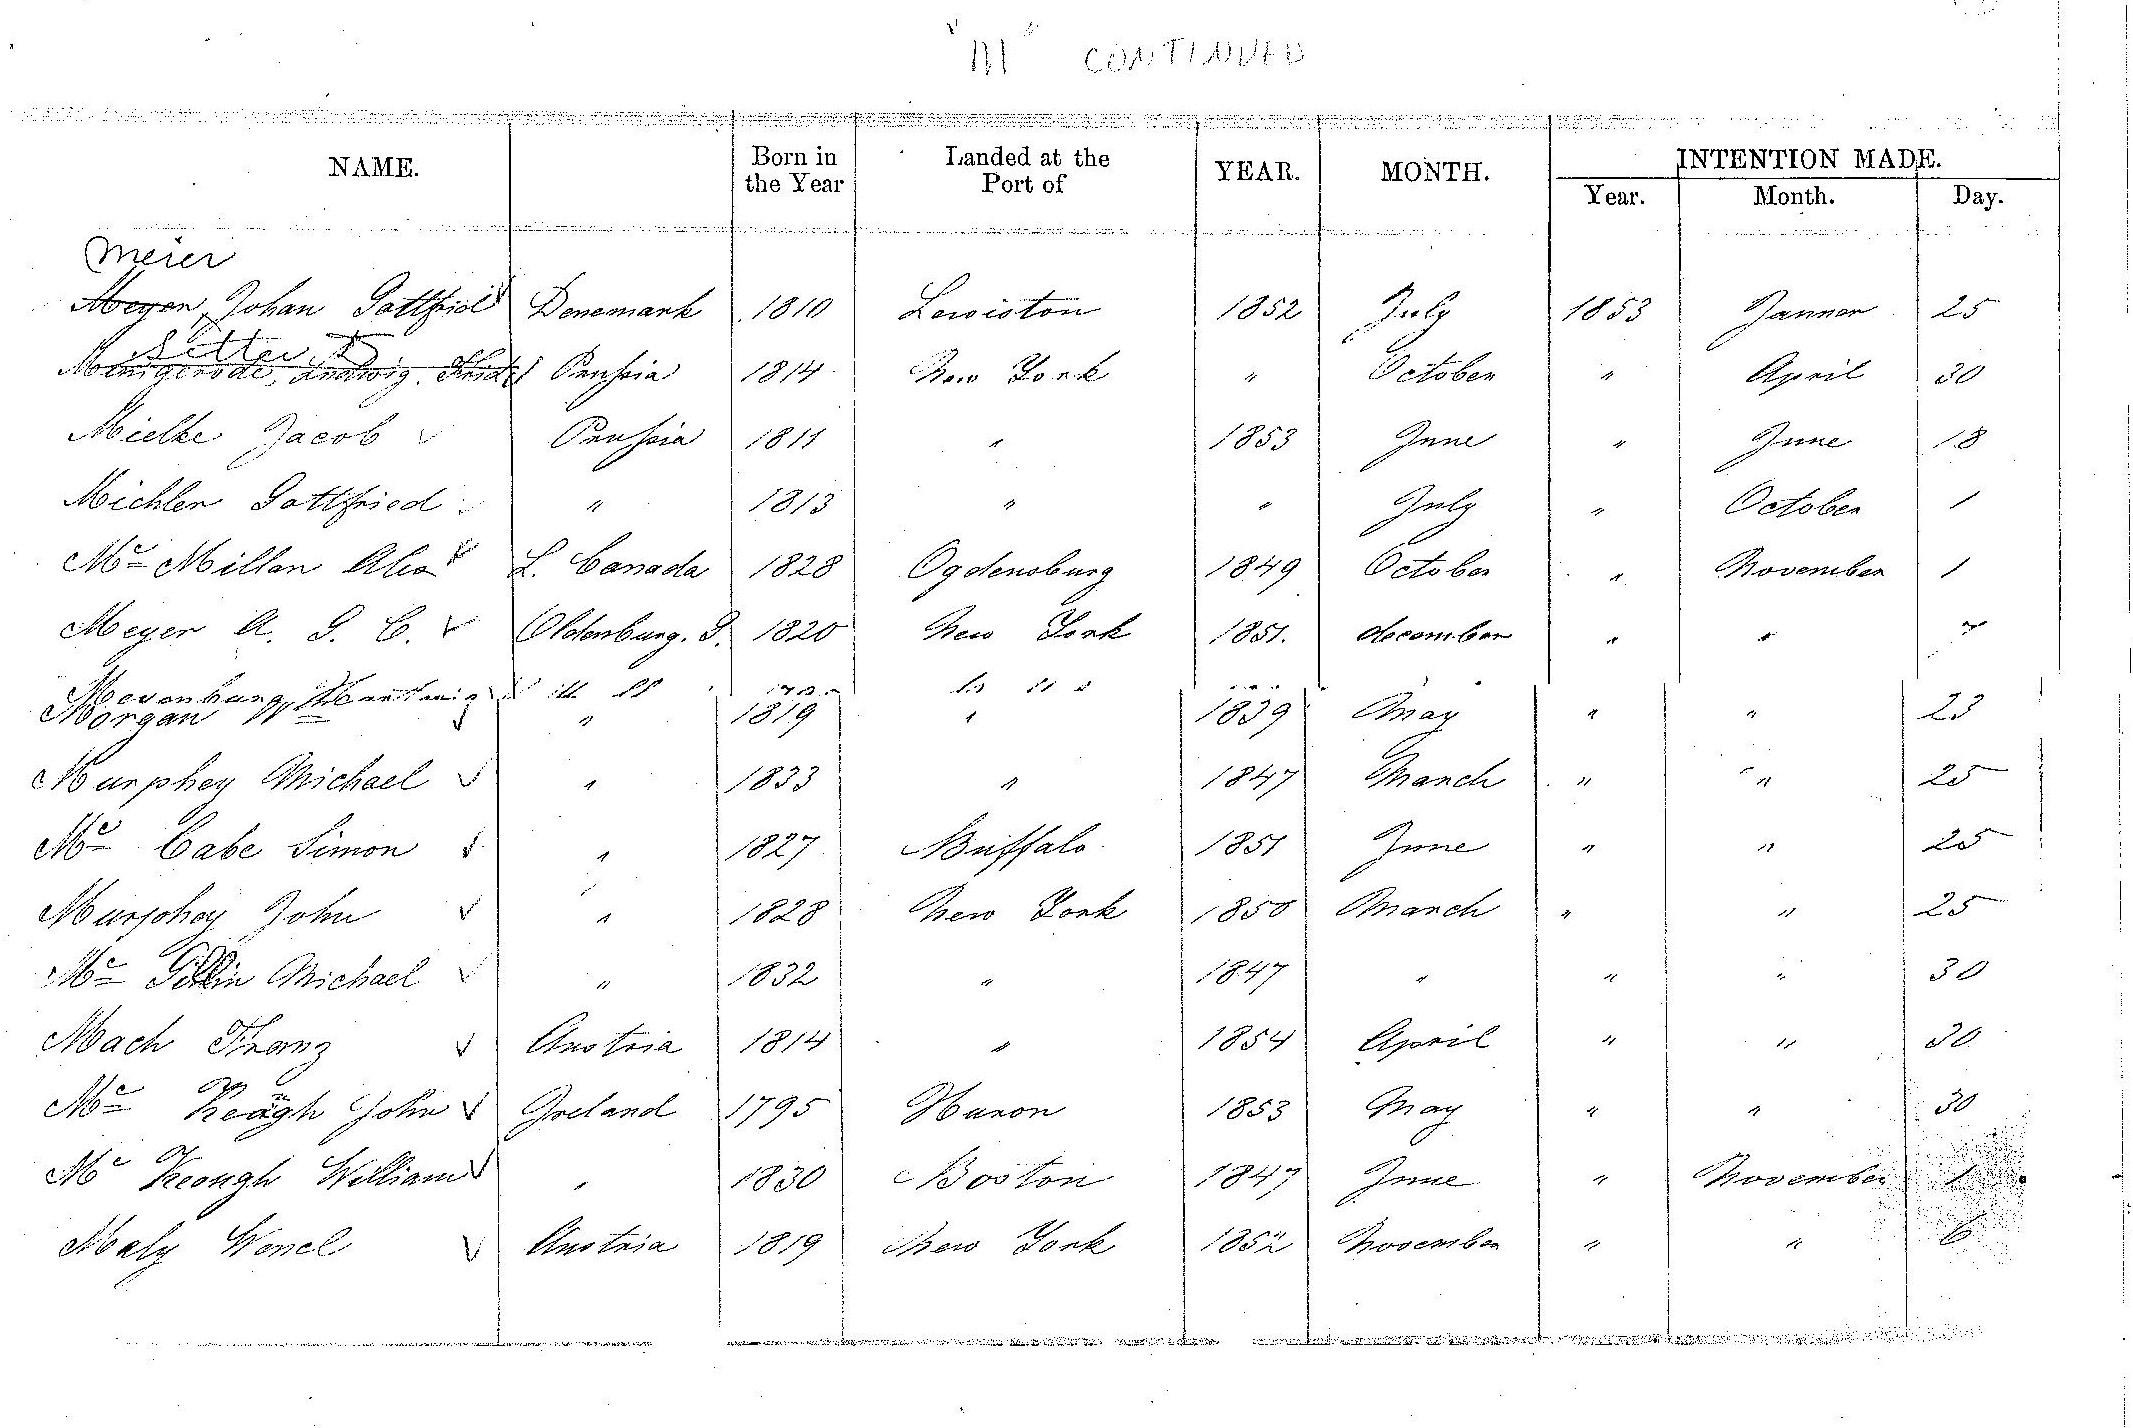 "M" CONTINUED
NAME. Born in the Year Landed at the Port of YEAR. MONTH. INTENTION MADE. Year. Month. Day.
Meier
Meyer, Johan Gottfried Denemark 1810 Lewiston 1852 July 1853 Januar 25
Mielke Jacob Prussia 1811 " 1853 June " June 18
Michler Gottfried " 1813 " " July " October 1
Mc Millan Alex L. Canada 1828 Ogdensburg 1849 October " November 1
Meyer A. G. C. Oldenburg. G. 1820 New York 1851. december " " 7
Morgan Wm " 1819 " 1839 May " " 23
Murphey Michael " 1833 " 1847 March " " 25
Mc Cabe Simon " 1827 Buffalo 1851 June " " 25
Murphey John " 1828 New York 1850 March " " 25
Mc Michael " 1832 " 1847 " " " 30
Mach Franz Austria 1814 " 1854 April " " 30
Mc Keough John Ireland 1795 Huron 1853 May " " 30
Mc Keough William " 1830 Boston 1847 June " November 1
Maly Wencl Austria 1819 New York 1852 November " " 6
Letter D
Ludwig Prussia 1814 New York " October " April 30